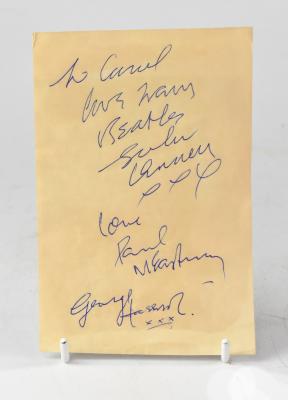 to Carol
love from
Beatles
John
Lennon
xxx
love
Paul
McCartney
George Harrison.
xxx